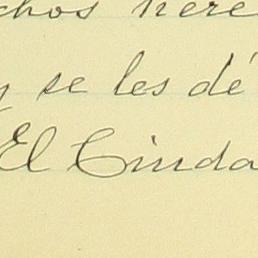 chos here
y se les dé
El Ciuda